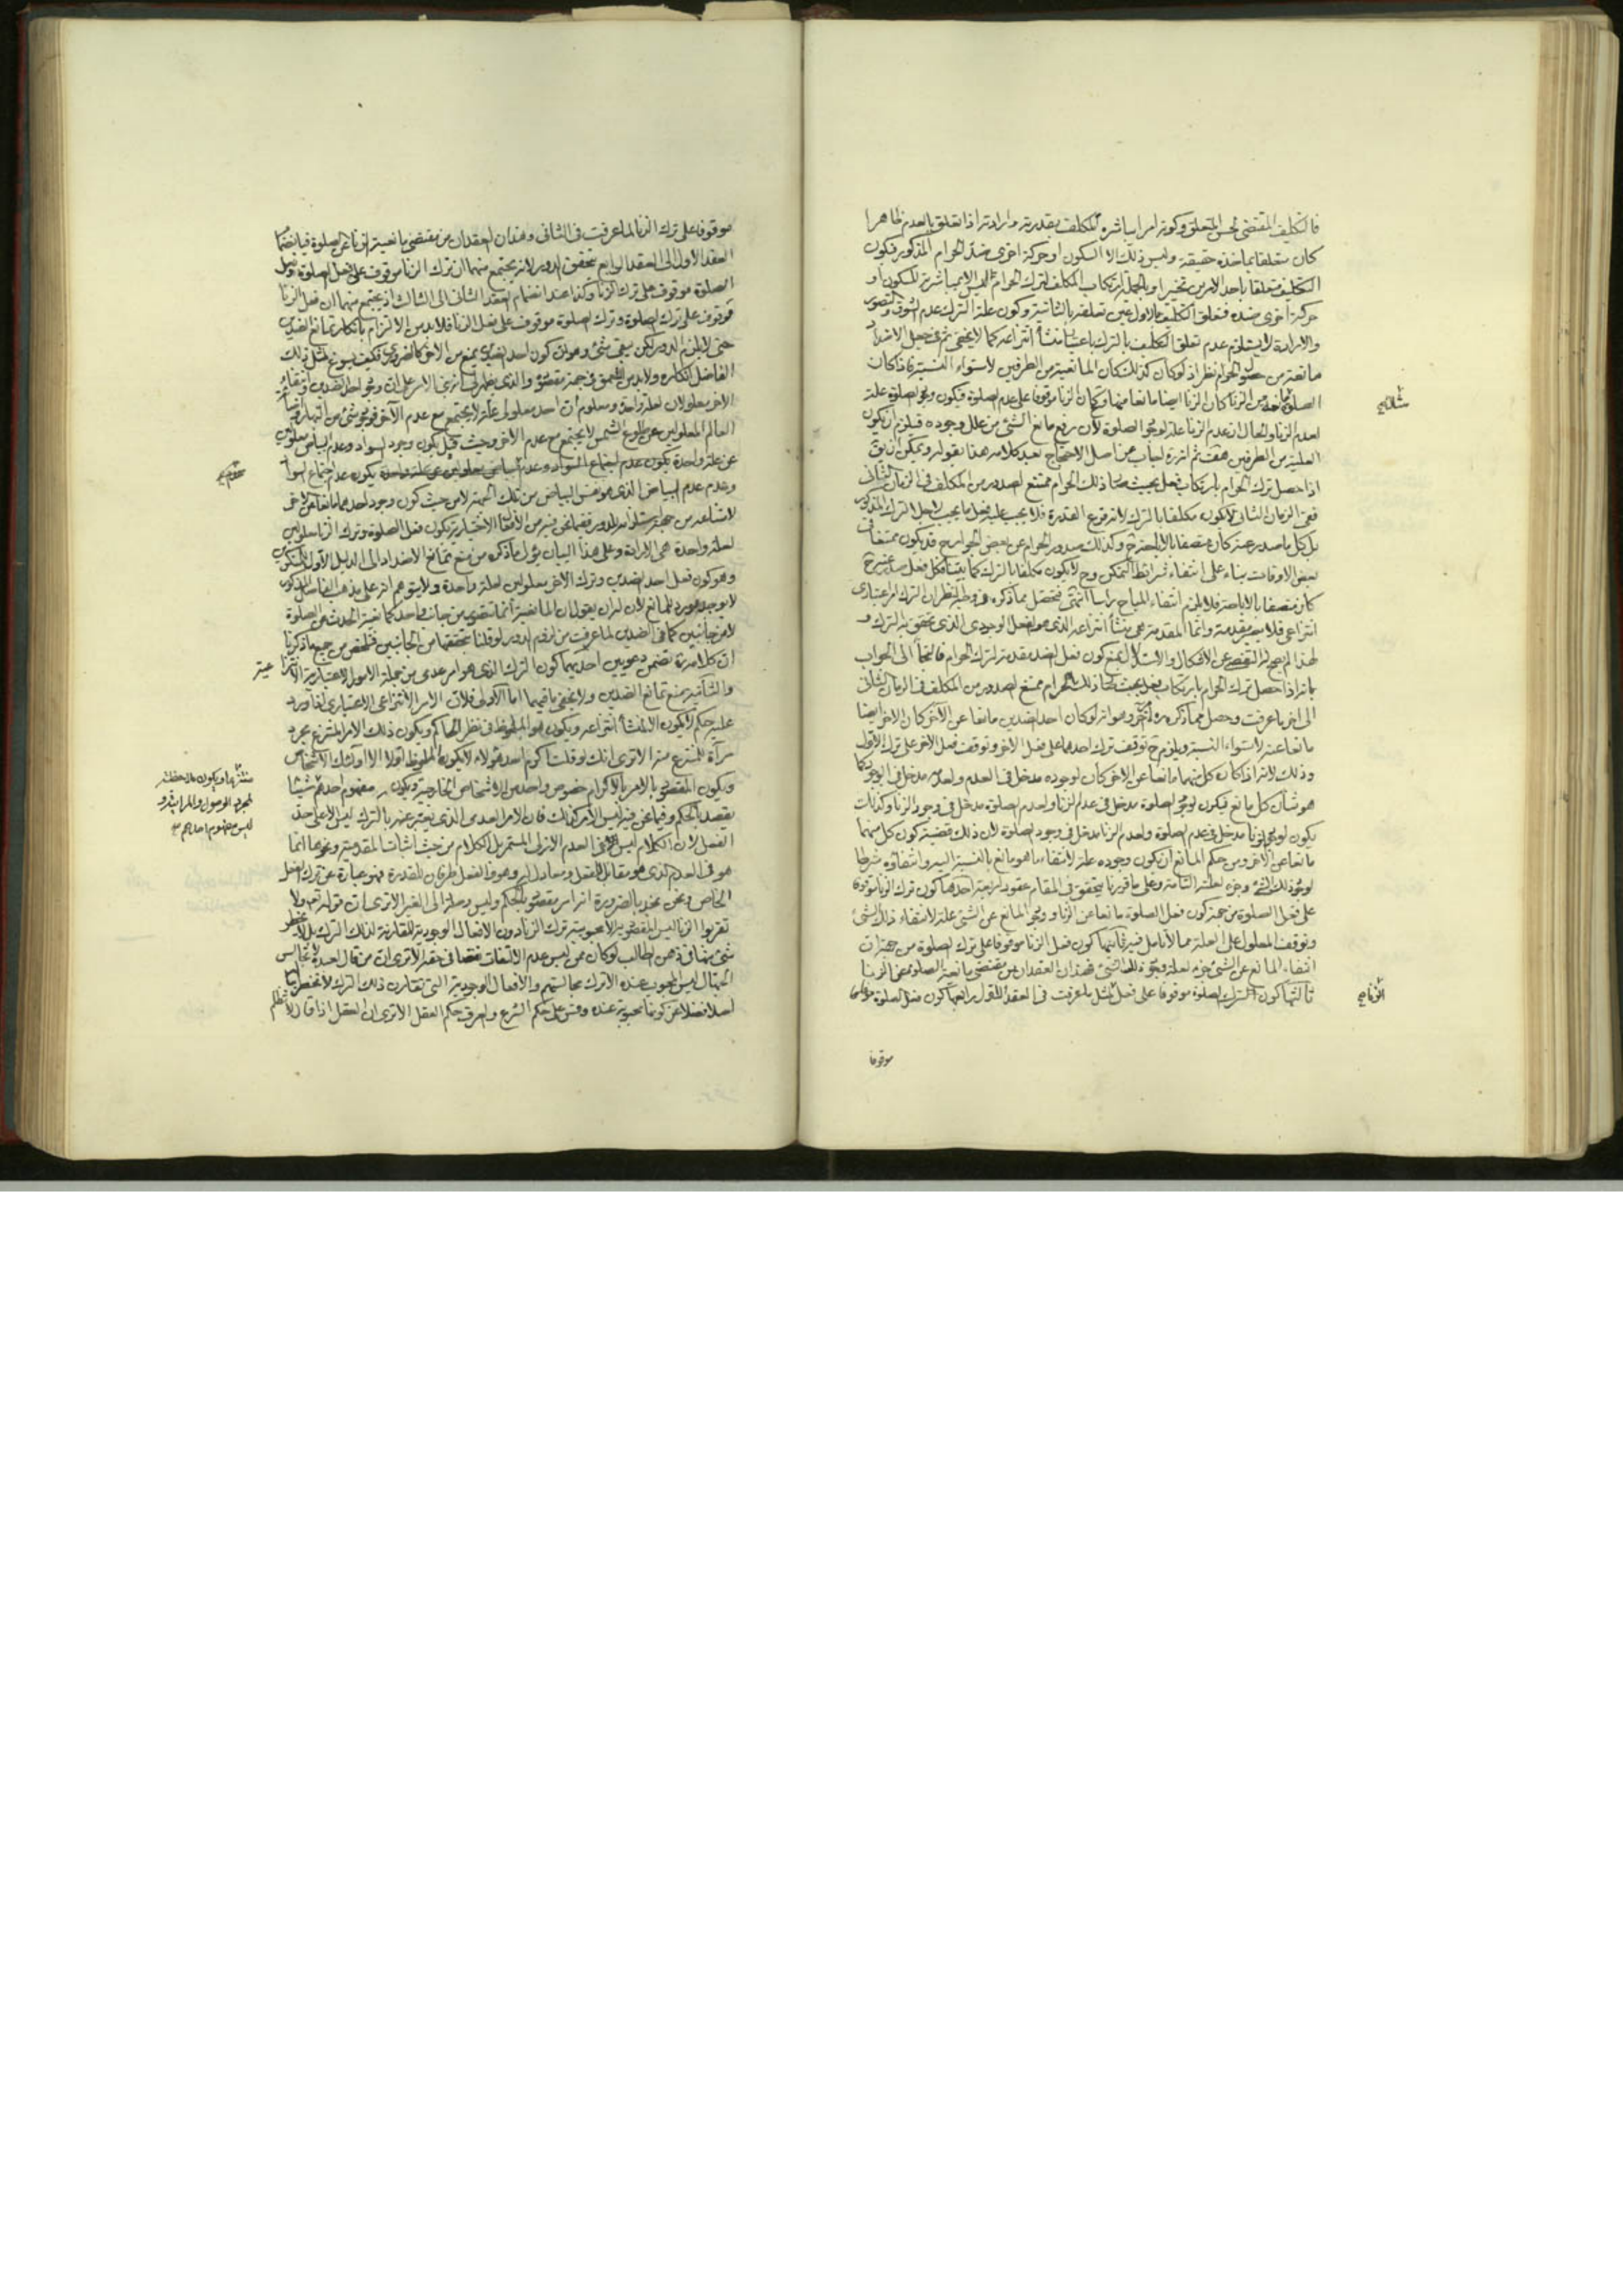 فالتكليف المقتضى لحسن المتعلق وكونه امرا يباشره المكلف بقدرته وارادته اذا تعلق بالعدم ظاهرا
كان متعلقا بما ضده حقيقة وليس ذلك الا السكون او حركة اخرى ضد الحرام المذكور فيكون
التكليف متعلقا باحد الامرين تخييرا وبالجملة ارتكاب المكلف لترك الحرام ليس الا بمباشرته للسكون او
حركة اخرى ضده فتعلق التكليف بالاول عين تعلقه بالثانية وكون علة الترك عدم الشوق والتصور
والارادة لا يستلزم عدم تعلق التكليف بالترك باعتبار منشأ انتزاعه كما لا يخفى ثم في جعل الاضداد
مانعة من حصول الحرام نظر اذ لو كان كذلك لكان المانعية من الطرفين لاستواء النسبة فاذا كان
الصلوة مانعة من الزنا كان الزنا ايضا مانعا منها وكان الزنا موقوفا على عدم الصلوة فيكون وجود الصلوة علة
لعدم الزنا والحال ان عدم الزنا علة لوجود الصلوة لان رفع مانع الشئ من علل وجوده فيلزم ان يكون
العلية من الطرفين هف ثم انه اجاب عن اصل الاحتجاج بعد كلامه هذا بقوله ويمكن ان يق
اذا حصل ترك الحرام بارتكاب فعل بحيث صار ذلك الحرام ممتنع الصدور من المكلف في الزمان الثانى
ففى الزمان الثانى لا يكون مكلفا بالترك لانه فرع القدرة فلا يجب عليه فعل ما يجب لاجل الترك المذكور
بل كل ما صدر عنه كان متصفا بالاباحة وكذلك صدور الحرام عن بعض الجوارح قد يكون ممتنعا في
بعض الاوقات بناء على انتفاء شرائط التمكن وح لا يكون مكلفا بالترك كما بينا فكل فعل صدر عنه ح
كان متصفا بالاباحة فلا يلزم انتفاء المباح راسا انتهى فتحصل مما ذكره في وجه النظر ان الترك امر اعتبارى
انتزاعى فلا يصير مقدمة وانما المقدمة هى منشأ انتزاعه الذى هو الفعل الوجودى الذى يتحقق به الترك و
لهذا لم يصح له التفصى عن الاشكال والاستدلال بمنع كون فعل الضد مقدمة لترك الحرام فالتجأ الى الجواب
بانه اذا حصل ترك الحرام بارتكاب فعل بحيث صار ذلك الحرام ممتنع الصدور من المكلف في الزمان الثانى
الى اخر ما عرفت وحصل مما ذكره اخيرا وهو انه لو كان احد الضدين مانعا عن الاخر كان الاخر ايضا
مانعا عنه لاستواء النسبة ويلزم ح توقف ترك احدهما على فعل الاخر وتوقف فعل الاخر على ترك الاول
وذلك لانه اذا كان كل منهما مانعا عن الاخر كان لوجوده مدخل في العدم ولعدمه مدخل في الوجود كما
هو شأن كل مانع فيكون لوجود الصلوة مدخل في عدم الزنا ولعدم الصلوة مدخل في وجود الزنا وكذلك
يكون لوجود الزنا مدخل في عدم الصلوة ولعدم الزنا مدخل في وجود الصلوة لان ذلك قضية كون كل منهما
مانعا عن الاخر ومن حكم المانع ان يكون وجوده علة لانتفاء ما هو مانع بالنسبة اليه وانتفاؤه شرطا
لوجود ذلك الشئ وجزء لعلته التامة وعلى ما قررنا يتحقق في المقام عقود اربعة احدها كون ترك الزنا موقوفا
على فعل الصلوة من جهة كون فعل الصلوة مانعا عن الزنا ووجود المانع عن الشئ علة لانتفاء ذلك الشئ
وتوقف المعلول على العلة مما لا تامل فيه ثانيها كون فعل الزنا موقوفا على ترك الصلوة من جهة ان
انتفاء المانع عن الشئ جزء لعلة وجود ذلك الشئ فهذان العقدان من مقتضى مانعية الصلوة عن الزنا
ثالثها كون ترك الصلوة موقوفا على فعل الزنا بمثل ما عرفت في العقد الاول رابعها كون فعل الصلوة
موقوفا
موقوفا على ترك الزنا لما عرفت في الثانى وهذان العقدان من مقتضى مانعية الزنا عن الصلوة فبانضمام
العقد الاول الى العقد الرابع يتحقق الدور لانه يجتمع منهما ان ترك الزنا موقوف على فعل الصلوة وفعل
الصلوة موقوف على ترك الزنا وكذا عند انضمام العقد الثانى الى الثالث اذ يجتمع منهما ان فعل الزنا
موقوف على ترك الصلوة وترك الصلوة موقوف على فعل الزنا فلا بد من الالتزام بانكار تمانع الضدين
حتى لا يلزم الدور لكن بقى شئ وهو ان كون احد الضدين يمنع من الاخر كالضرورى فكيف يسوغ لمثل ذلك
الفاضل انكاره ولا بد من التعمق في جهة مقصوده والذى يظهر لى انه بنى الامر على ان وجود احد الضدين وانتفاء
الاخر معلولان لعلة واحدة ومعلوم ان احد معلولى علة لا يجتمع مع عدم الآخر فوجود شئ من النهار وضياء
العالم المعلولين عن طلوع الشمس لا يجتمع مع عدم الاخر وحيث قيل بكون وجود السواد وعدم البياض معلولين
عن علة واحدة يكون عدم اجتماع السواد
وعدم عدم البياض الذى هو نفس البياض من تلك الجهة لا من حيث كون وجود احدهما مانعا عن الاخر
لامتناعه من جهة استلزامه الدور ففيما نحن فيه من الافعال الاختيارية يكون فعل الصلوة وترك الزنا معلولين
لعلة واحدة هى الارادة وعلى هذا البيان يؤل ما ذكره من منع تمانع الاضداد الى الدليل الاول
وهو كون فعل احد الضدين وترك الاخر معلولين لعلة واحدة ولا يتوهم انه على مذهب الفاضل المذكور
لا يوجد مورد للمانع لان له ان يقول ان المانعية انما تتصور من جانب واحد كمانعية الحدث عن الصلوة
لا من جانبين كما في الضدين لما عرفت من لزوم الدور لو قلنا بتحققها من الجانبين فتلخص من جميع ما ذكرنا
ان كلامه تضمن دعويين احديهما كون الترك الذى هو امر عدمى من جملة الامور الاعتبارية الانتزاعية
والثانية منع تمانع الضدين ولا يخفى ما فيهما اما الاولى فلان الامر الانتزاعى الاعتبارى لغا ورد
عليه حكم لا يكون الا لمنشأ انتزاعه ويكون هو الملحوظ في نظر الحاكم ويكون ذلك الامر المنتزع مجرد
مرآة للمنتزع منه الا ترى انك لو قلت اكرم احد هؤلاء لا يكون الملحوظ اولا الا اولئك الاشخاص
ويكون المقصود بالامر بالاكرام خصوص واحد من الاشخاص الخارجية ويكون مفهوم احدهم شيئا
يقصد بالحكم وفيما نحن فيه ليس الامر كذلك فان الامر العدمى الذى يعبر عنه بالترك ليس الا على حد
الفعل لان الكلام ليس في العدم الازلى المستمر بل الكلام من حيث اثبات المقدمية ونحوها انما
هو في العدم الذى هو مقابل للفعل ومعادل له وهو والفعل طرفان للقدرة فهو عبارة عن ترك الفعل
الخاص ونحن نجد بالضرورة انه امر مقصود بالحكم وليس وصلة الى الغير الا ترى ان قوله تعالى ولا
تقربوا الزنا ليس المقصود به الا محبوبية ترك الزنا دون الافعال الوجودية المقارنة لذلك الترك بل لا يخطر
شئ منها في ذهن الطالب لو كان ممن ليس عدم الالتفات نقصا في حقه الا ترى ان من قال لعبده لا تجالس
الجهال ليس المحبوب عنده الا ترك مجالستهم والافعال الوجودية التى تقارن ذلك الترك لا تخطر بباله
اصلا فضلا عن كونها محبوبة عنده وقس على حكم الشرع والعرف حكم العقل الا ترى ان العقل اذا قال لا تظلم